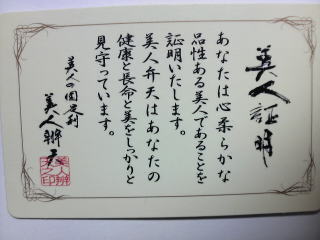 美人証明
あなたは心柔らかな
品性ある美人であることを
証明いたします。
美人弁天はあなたの
健康と長命と美をしっかりと
見守っています。
美人の国足利
美人辨天
美人辨
天之印